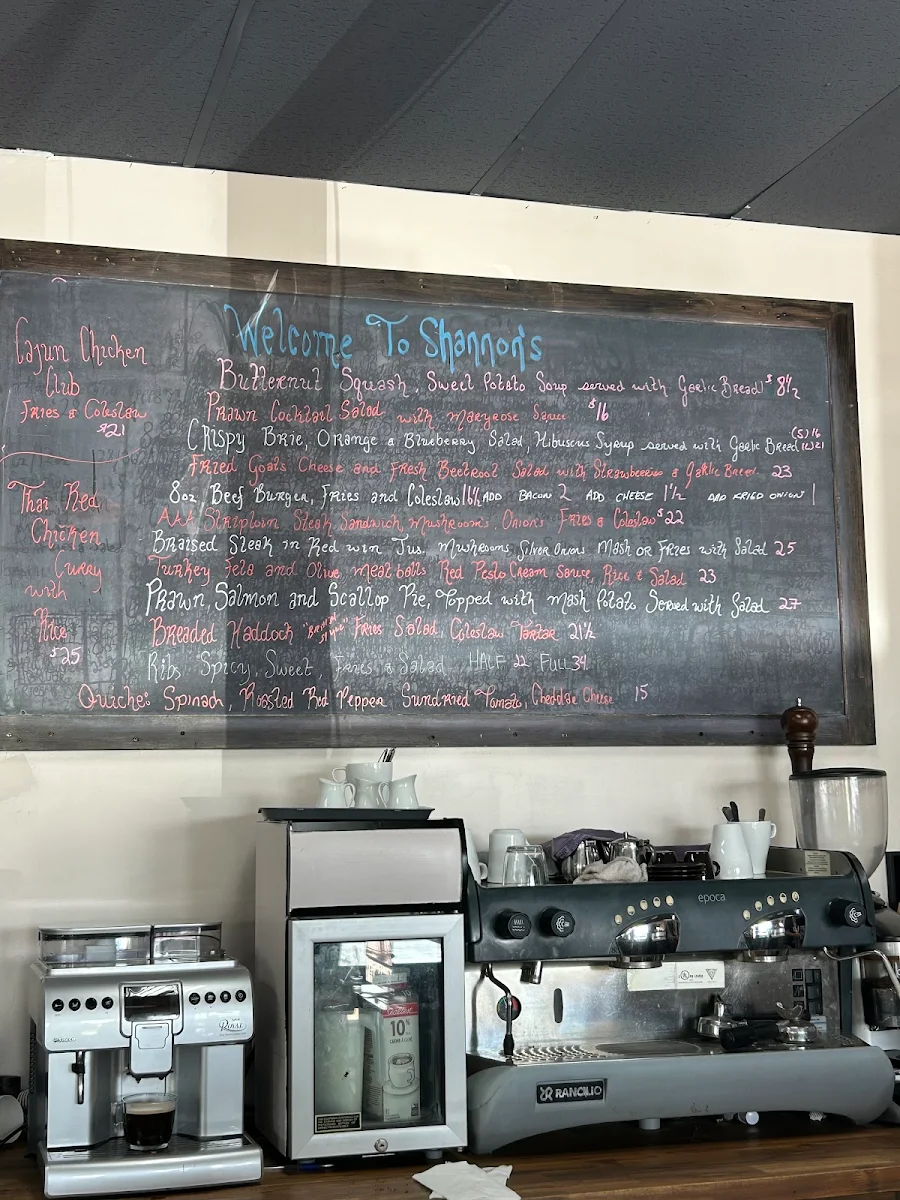 Welcome To Shannon's
Cajun Chicken
Club
Fries & Coleslaw
$21
Thai Red
Chicken
Curry
with
Rice
$25
Butternut Squash, Sweet Potato Soup served with Garlic Bread $8½
Prawn Cocktail Salad with Maryrose Sauce $16
Crispy Brie, Orange & Blueberry Salad Hibuscus Syrup served with Garlic Bread (S) 16 (L) 21
Fried Goats Cheese and Fresh Beetroot Salad with Strawberries & Garlic Bread 23
8oz Beef Burger, Fries and Coleslaw 16½ ADD BACON 2 ADD CHEESE 1½ ADD FRIED ONION 1
AAA Striploin Steak Sandwich, Mushroom's, Onion's Fries & Coleslaw $22
Braised Steak in Red win Jus, Mushrooms, Silver Onions Mash or Fries with Salad 25
Turkey Feta and Olive meatballs Red Pesto Cream Sauce, Rice & Salad 23
Prawn, Salmon and Scallop Pie, Topped with Mash Potato Served with Salad 27
Breaded Haddock Fries Salad, Coleslaw Tartar 21½
Ribs Spicy, Sweet, Fries & Salad HALF 22 FULL 34
Quiche: Spinach, Roasted Red Pepper Sundried Tomato, Cheddar Cheese 15
epoca
Royal
10%
RANCILIO